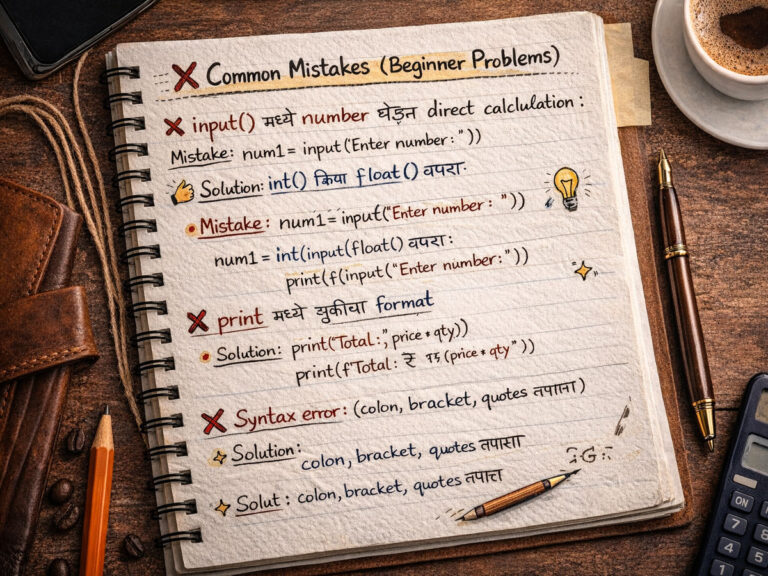 Common Mistakes (Beginner Problems)
input() मध्ये number घेड़न direct calclulation:
Mistake: num1 = input('Enter number:"))
Solution: int() किंपा float() वपरा.
Mistake: num1 = input("Enter number: "))
num1 = int(input(float() वपरा:
print(f(input("Enter number:"))
print मध्ये चुकीचा format
Solution: print("Total:", price * qty))
print(f'Total: ₹ (price * qty"))
Syntax error: (colon, bracket, quotes तपाना)
Solution:
colon, bracket, quotes तपासा
Solut: colon, bracket, quotes तपात्त
ON
7
8
4
5
1